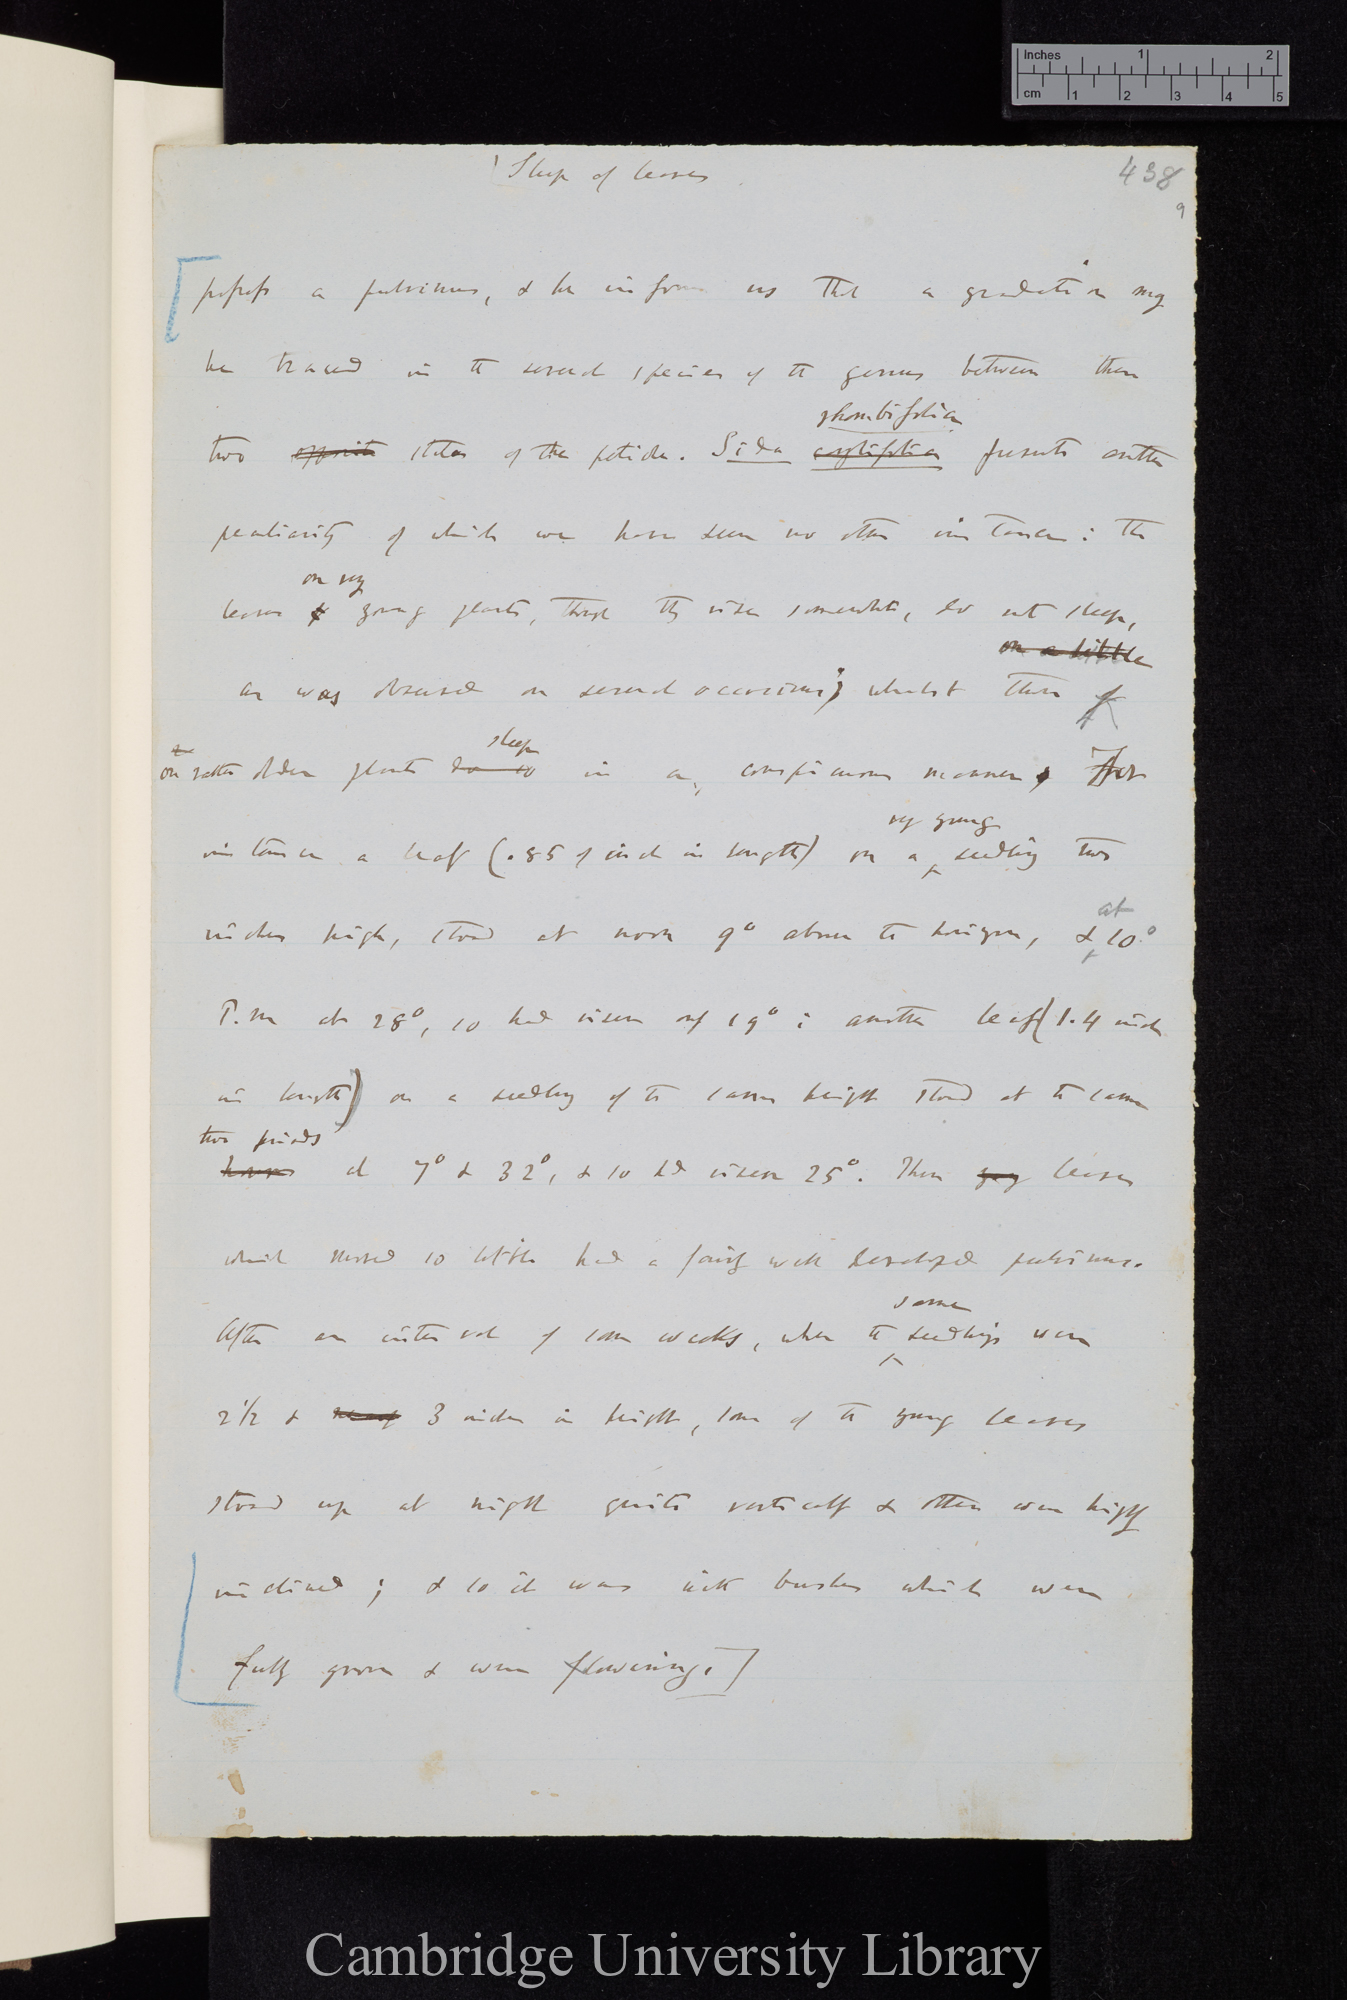 Inches 1 2
cm 1 2 3 4 5
(Sleep of leaves
438
9
possess a pulvinus, & he informs us that a gradation may
be traced in the several species of the genus between these
rhombifolia
two opposite states of the petiole. Sida presents another
peculiarity of which we have seen no other instance: the
on very
leaves young plants, though they rise somewhat, do not sleep,
on a little
as was observed on several occasions; whilst those
sleep
on rather older plants do so in a conspicuous manner. For
very young
instance a leaf (.85 of inch in length) on a seedling two
at
inches high, stood at noon 9° above the horizon, & 10°
P.m at 28°, so had risen only 19°; another leaf (1.4 inch
in length) on a seedling of the same height stood at the same
two periods
hours at 7° & 32°, & so had risen 25°. These leaves
which moved so little had a fairly well developed pulvinus.
same
After an interval of some weeks, when the seedlings were
2½ & 3 inches in height, some of the young leaves
stood up at night quite vertically & others were highly
inclined; & so it was with bushes which were
fully grown & were flowering.]
Cambridge University Library